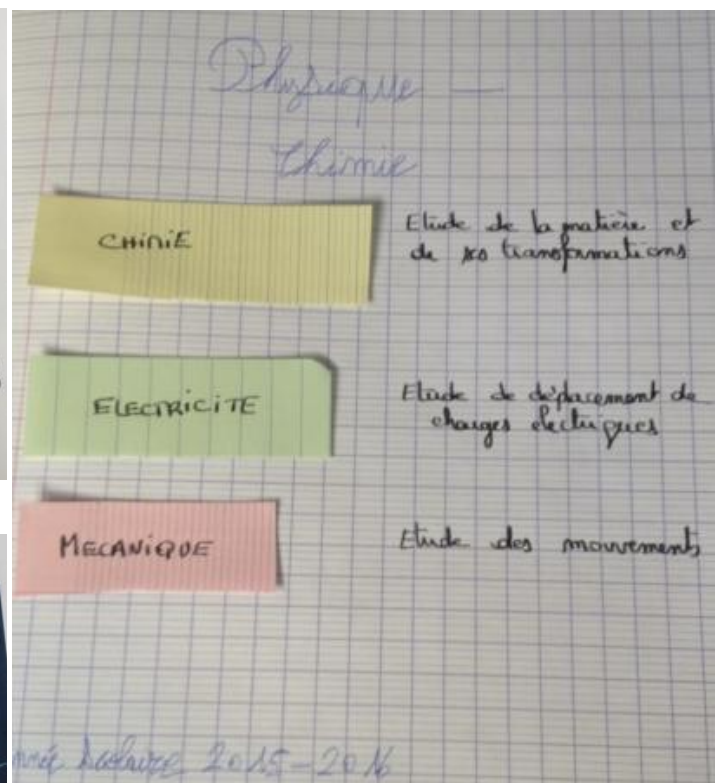 Physique —
Chimie
CHIMIE
Etude de la matière et
de ses transformations
ELECTRICITE
Etude de déplacement de
charges electriques
MECANIQUE
Etude des mouvements
nnée Scolaire 2015-2016